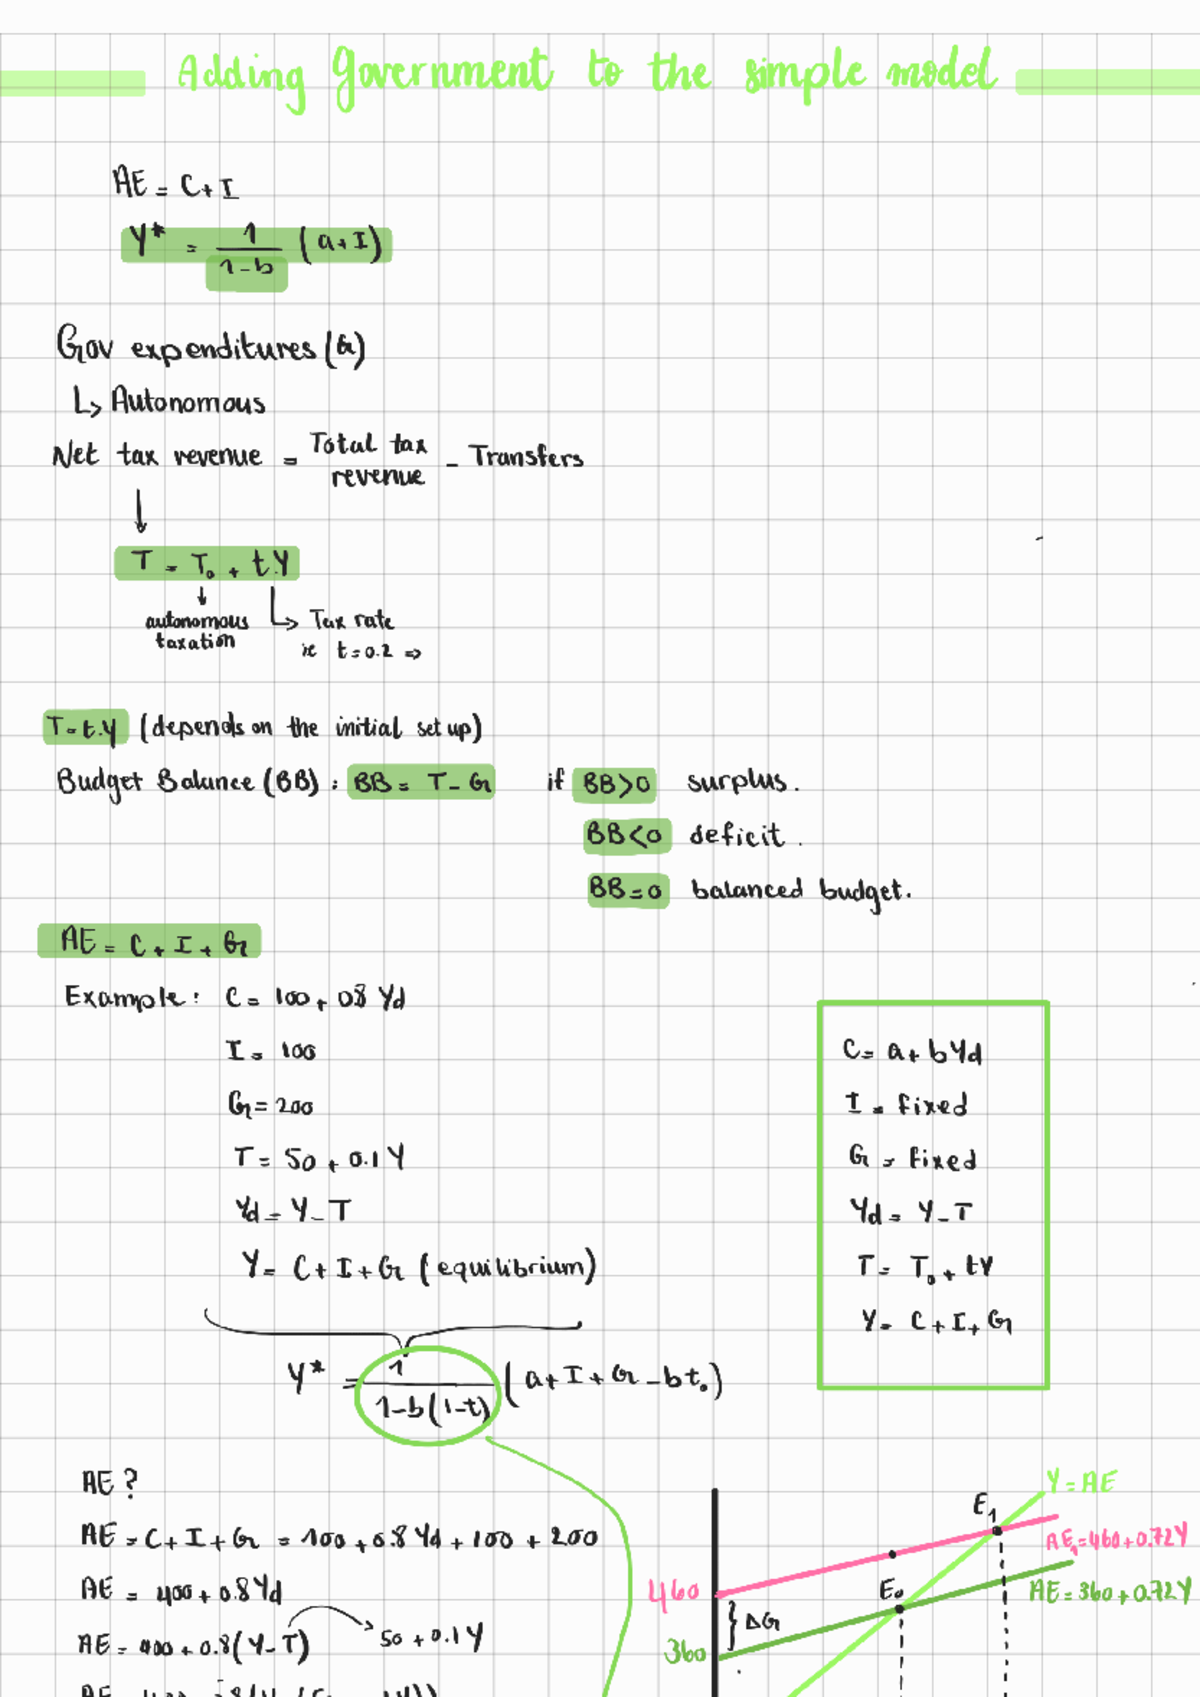 Adding Government to the simple model
AE = C + I
Y* = 1/(1-b) (a+I)
Gov expenditures (G)
↳ Autonomous
Net tax revenue = Total tax revenue - Transfers
↓
T = T₀ + t.Y
↓ autonomous taxation
↳ Tax rate
ie t=0.2 ⇒
T=t.y (depends on the initial set up)
Budget Balance (BB) : BB = T - G if BB>0 surplus.
BB<0 deficit.
BB=0 balanced budget.
AE = C + I + G
Example: C = 100 + 08 Yd
I = 100
G = 200
T = 50 + 0.1 Y
Yd = Y - T
Y = C + I + G (equilibrium)
C = a + b Yd
I = fixed
G = fixed
Yd = Y - T
T = T₀ + tY
Y = C + I + G
Y* = 1/(1-b(1-t)) (a + I + G - bt₀)
AE ?
AE = C + I + G = 100 + 0.8 Yd + 100 + 200
AE = 400 + 0.8 Yd
AE = 400 + 0.8 (Y - T) → 50 + 0.1 Y
Y = AE
E₁
AE₁ = 460 + 0.72Y
460
E₀
AE = 360 + 0.72Y
} ΔG
360